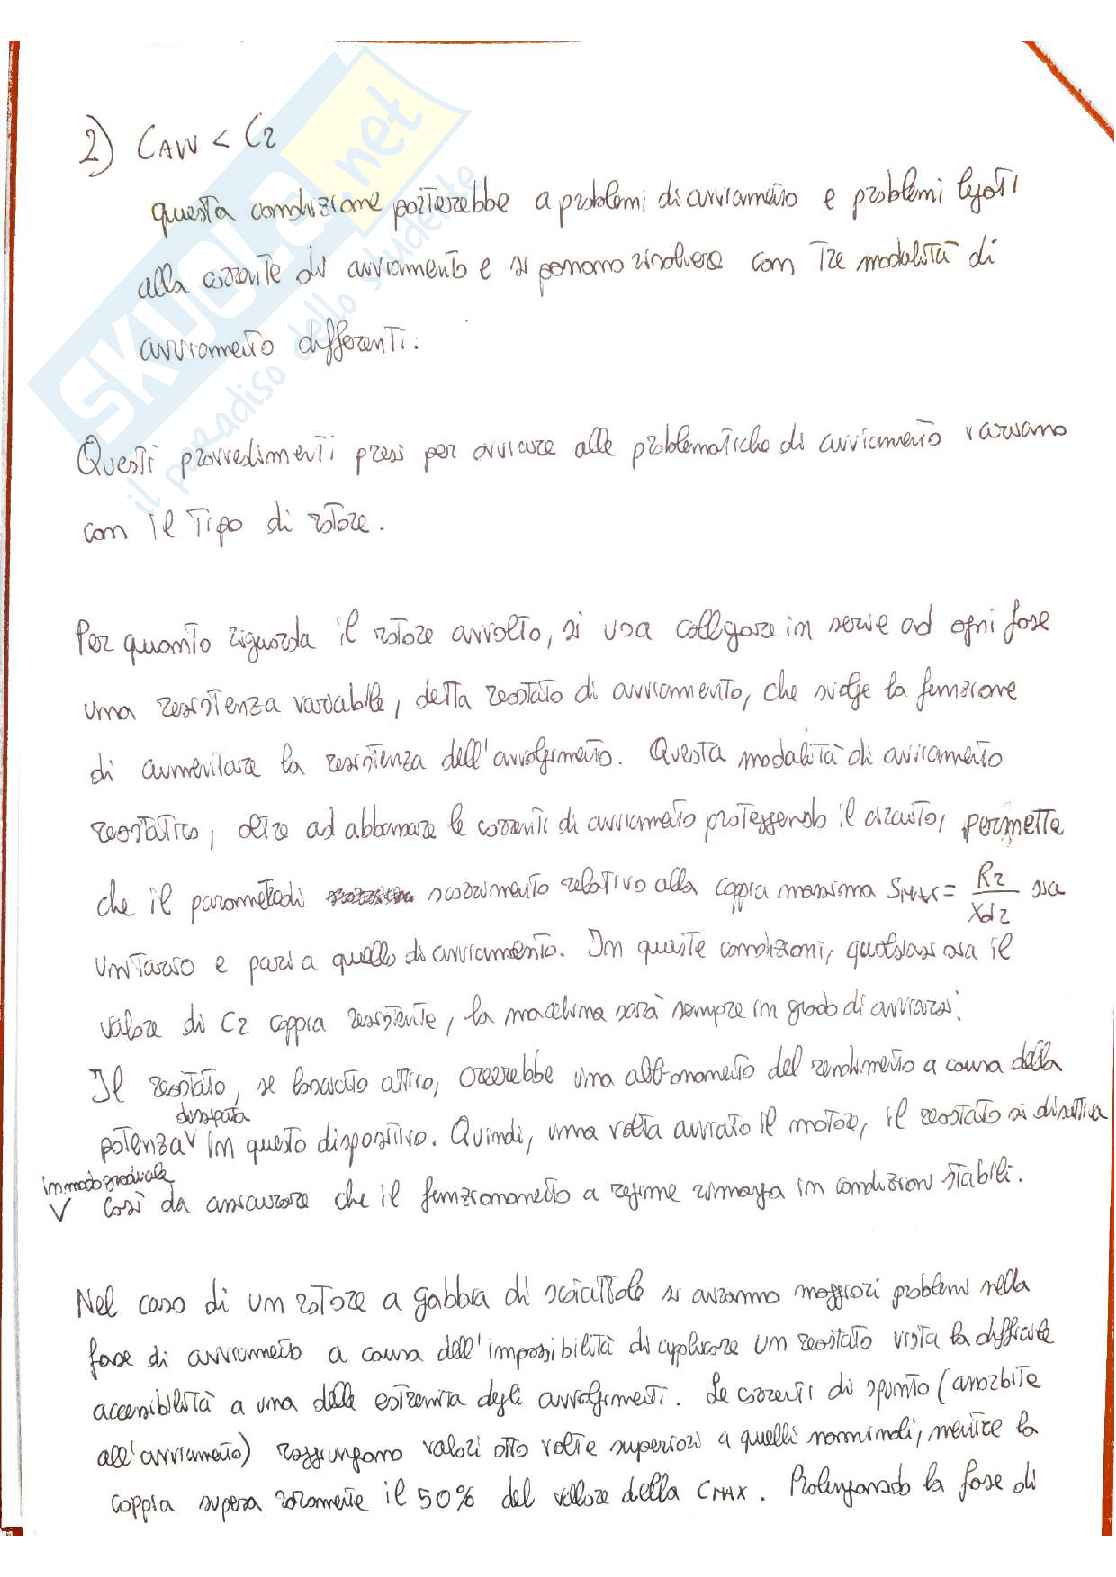 2) CAVV < C2
questa condizione porterebbe a problemi di avviamento e problemi legati
alla corrente di avviamento e si possono risolvere con tre modalità di
avviamento differenti.
Questi provvedimenti presi per ovviare alle problematiche di avviamento variano
con il tipo di rotore.
Per quanto riguarda il rotore avvolto, si usa collegare in serie ad ogni fase
una resistenza variabile, detta reostato di avviamento, che svolge la funzione
di aumentare la resistenza dell'avvolgimento. Questa modalità di avviamento
reostatico, oltre ad abbassare le correnti di avviamento proteggendo il circuito, permette
che il parametro di scorrimento relativo alla coppia massima SMAX = R2/Xd2 sia
unitario e pari a quello di avviamento. In queste condizioni, qualsiasi sia il
valore di C2 coppia resistente, la macchina sarà sempre in grado di avviarsi.
Il reostato, se lasciato attivo, creerebbe una abbassamento del rendimento a causa della
potenza dissipata in questo dispositivo. Quindi, una volta avviato il motore, il reostato si disattiva
in modo graduale così da assicurare che il funzionamento a regime rimanga in condizioni stabili.
Nel caso di un rotore a gabbia di scoiattolo si avranno maggiori problemi nella
fase di avviamento a causa dell'impossibilità di applicare un reostato vista la difficile
accessibilità a una delle estremità degli avvolgimenti. Le correnti di spunto (assorbite
all'avviamento) raggiungono valori otto volte superiori a quelli nominali, mentre la
coppia supera raramente il 50% del valore della CMAX. Prolungando la fase di
SKUOLA.net
il paradiso dello studente